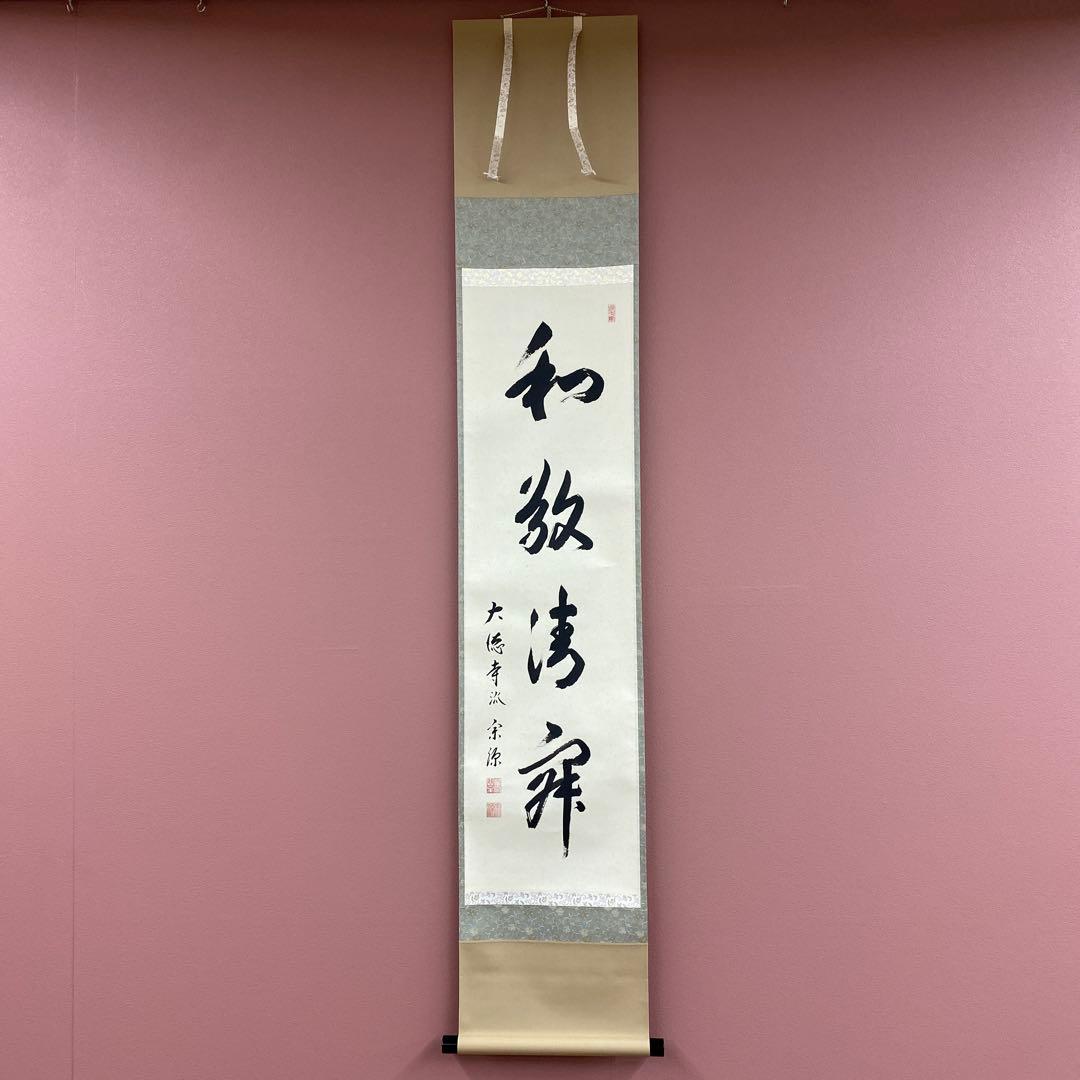 和敬清寂
大徳寺派 宗源